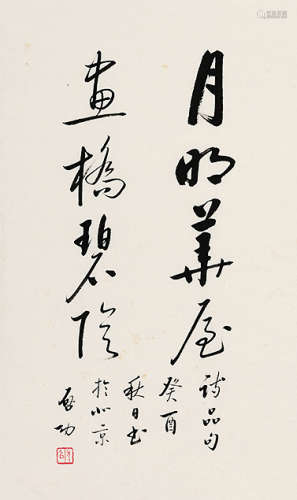 月明華屋
畫橋碧陰
詩品句
癸酉
秋日書
於北京
啟功